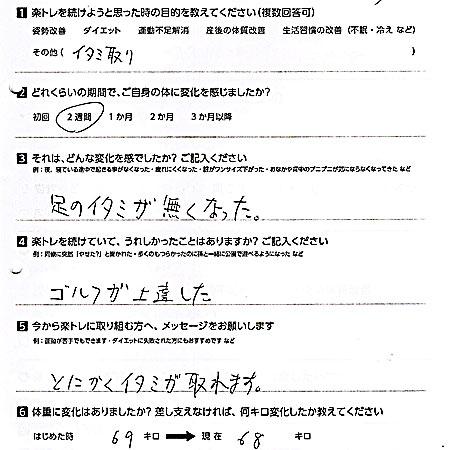 1 楽トレを続けようと思った時の目的を教えてください(複数回答可)
姿勢改善 ダイエット 運動不足解消 産後の体質改善 生活習慣の改善(不眠・冷え など)
その他( イタミ取り )
2 どれくらいの期間で、ご自身の体に変化を感じましたか?
初回 2週間 1か月 2か月 3か月以降
3 それは、どんな変化を感でしたか? ご記入ください
例:夜、寝ている途中で起きる事がなくなった・疲れにくくなった・服がワンサイズ下がった・おなかや背中のプニプニが気にならなくなってきた など
足のイタミが無くなった。
4 楽トレを続けていて、うれしかったことはありますか? ご記入ください
例:同僚に突然「やせた?」と驚かれた・歩くのもつらかったのに孫と一緒に公園で遊べるようになった など
ゴルフが上達した
5 今から楽トレに取り組む方へ、メッセージをお願いします
例:運動が苦手でもできます・ダイエットに失敗された方にもおすすめです など
とにかくイタミが取れます。
6 体重に変化はありましたか? 差し支えなければ、何キロ変化したか教えてください
はじめた時 69 キロ ➡ 現在 68 キロ